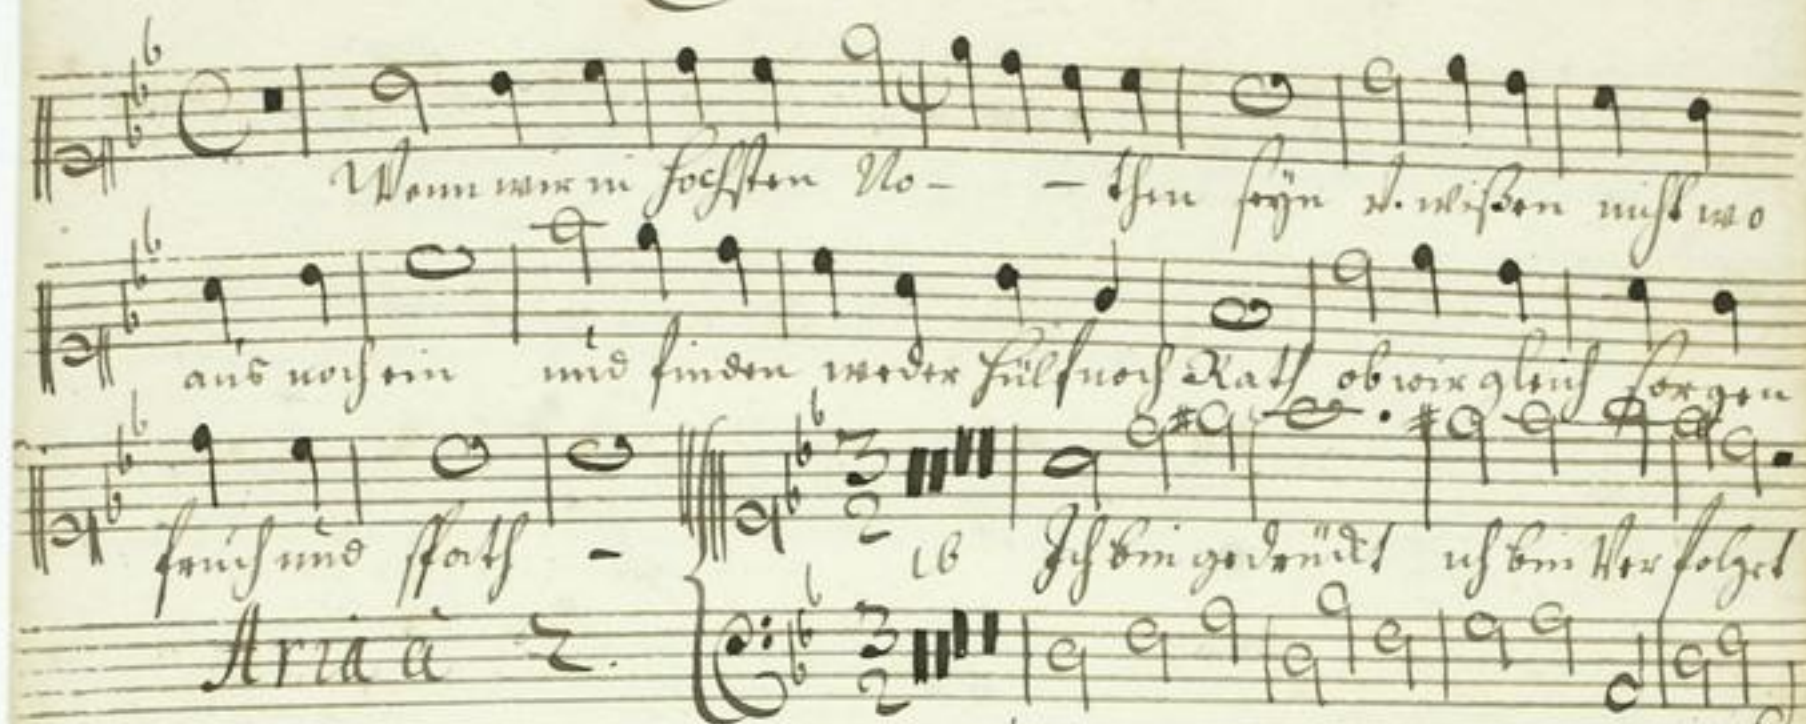 Wenn wir in höchsten No - - then seÿn v. wißen nicht wo
aus noch ein und finden weder Hülf noch Rath ob wir gleich sorgen
früh und spath -
3 2 16 Ich bin gedrückt ich bin Verfolget
Aria à 2. 3 2